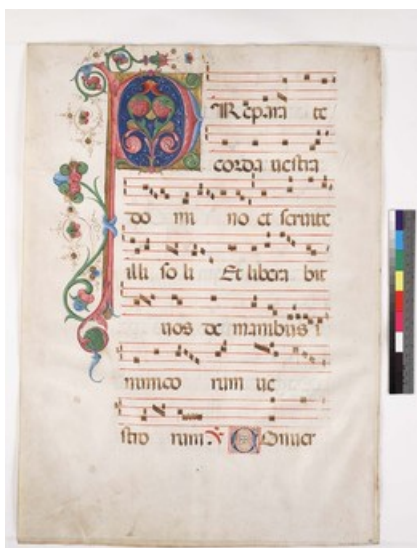 PRepara te
corda uestra
do mi no et seruite
illi so li Et libera bit
uos de manibus i
nimico rum ue
stro rum. ℣ Conuer